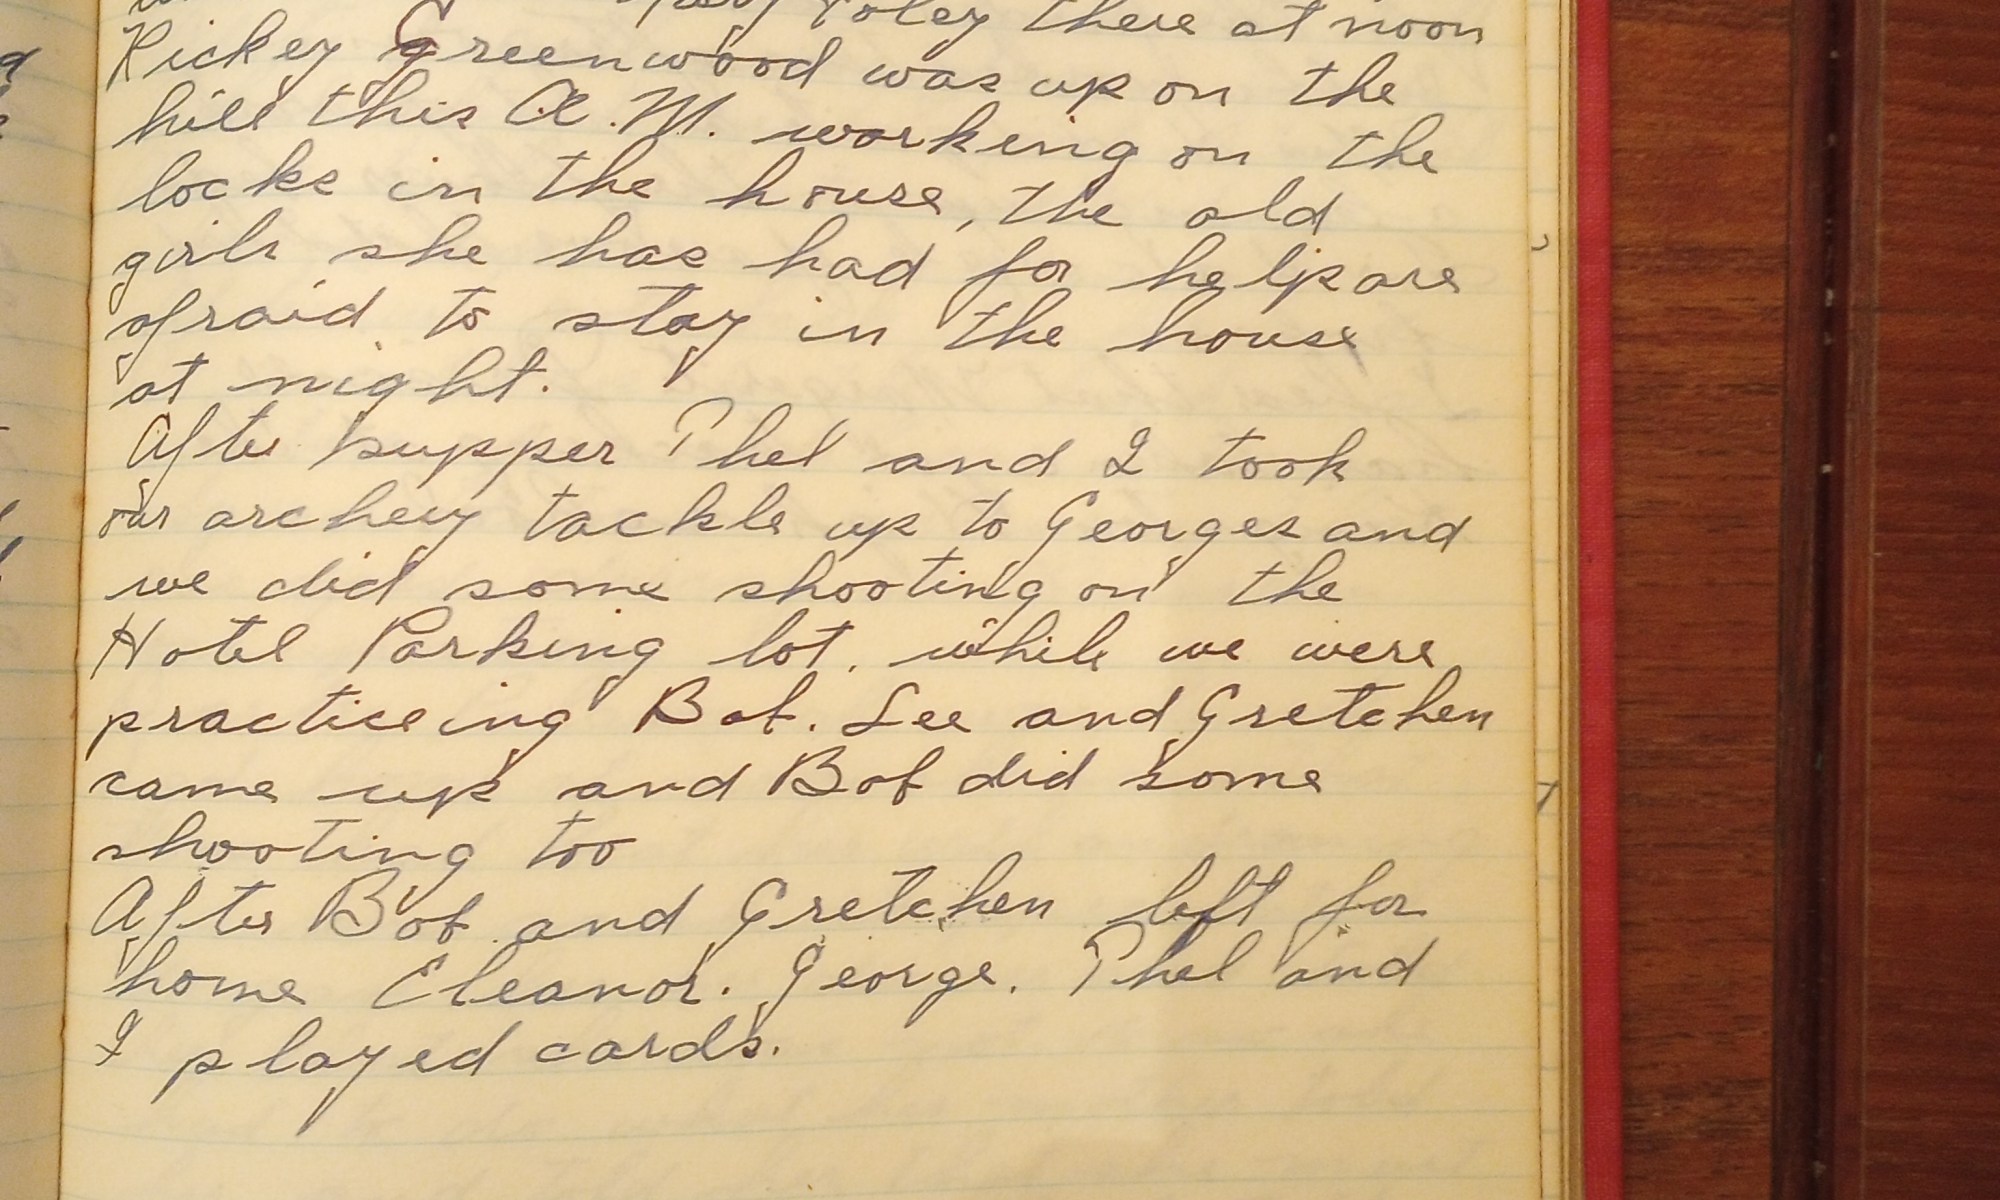 Foley there at noon
Rickey Greenwood was up on the
hill this A.M. working on the
locks in the house, the old
girls she has had for help are
afraid to stay in the house
at night.
After supper Phel and I took
our archery tackle up to Georges and
we did some shooting on the
Hotel Parking lot. while we were
practiceing Bob. Lee and Gretchen
came up and Bob did some
shooting too
After Bob and Gretchen left for
home Eleanor. George. Phel and
I played cards.